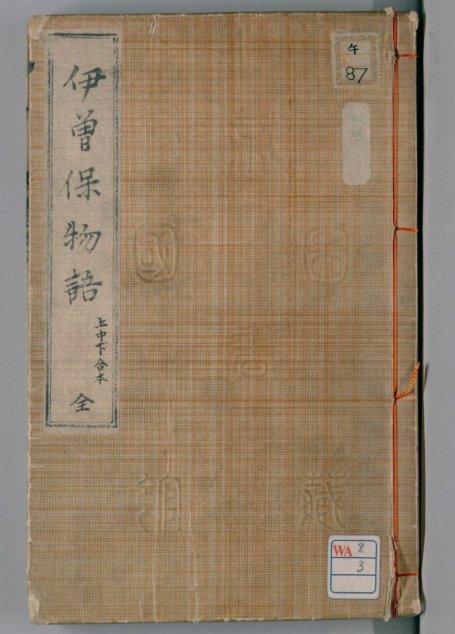 伊曽保物語
上中下合本
全
午
87
WA
8
3